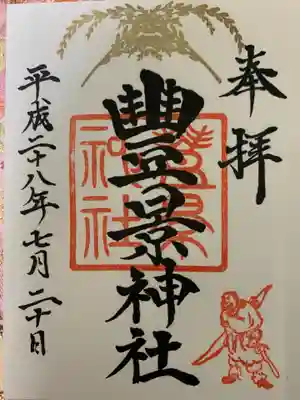 奉拝
豊景神社
豊景
神社
平成二十八年七月二十日